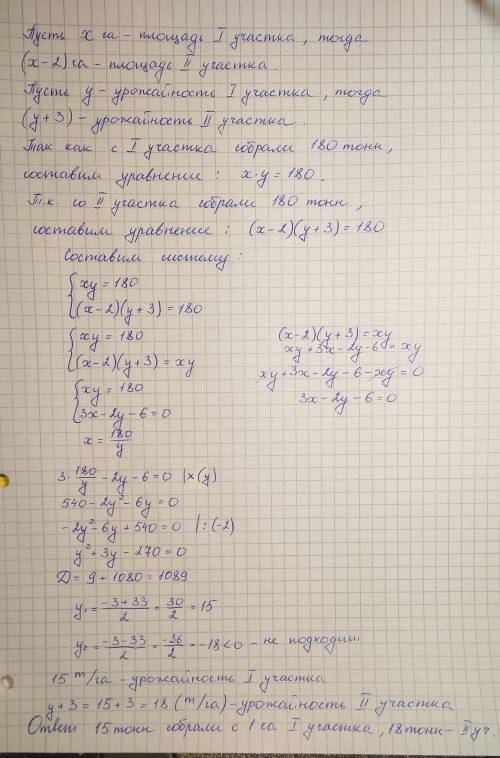 Пусть x га - площадь I участка, тогда
(x-2) га - площадь II участка.
Пусть y - урожайность I участка, тогда
(y+3) - урожайность II участка.
Так как с I участка собрали 180 тонн,
составим уравнение: x·y = 180.
Т.к. со II участка собрали 180 тонн,
составим уравнение: (x-2)(y+3) = 180
Составим систему:
{xy = 180
(x-2)(y+3) = 180
{xy = 180
(x-2)(y+3) = xy
{xy = 180
3x-2y-6=0
x = 180/y
(x-2)(y+3) = xy
xy+3x-2y-6=xy
xy+3x-2y-6-xy=0
3x-2y-6=0
3·180/y -2y-6=0 |×(y)
540-2y²-6y=0
-2y²-6y+540=0 |:(-2)
y²+3y-270=0
Д = 9+1080=1089
y₁ = (-3+33)/2 = 30/2 = 15
y₂ = (-3-33)/2 = -36/2 = -18<0 - не подходит
15 т/га - урожайность I участка
y+3 = 15+3 = 18 (т/га) - урожайность II участка
Ответ: 15 тонн собрали с 1 га I участка, 18 тонн - II уч.